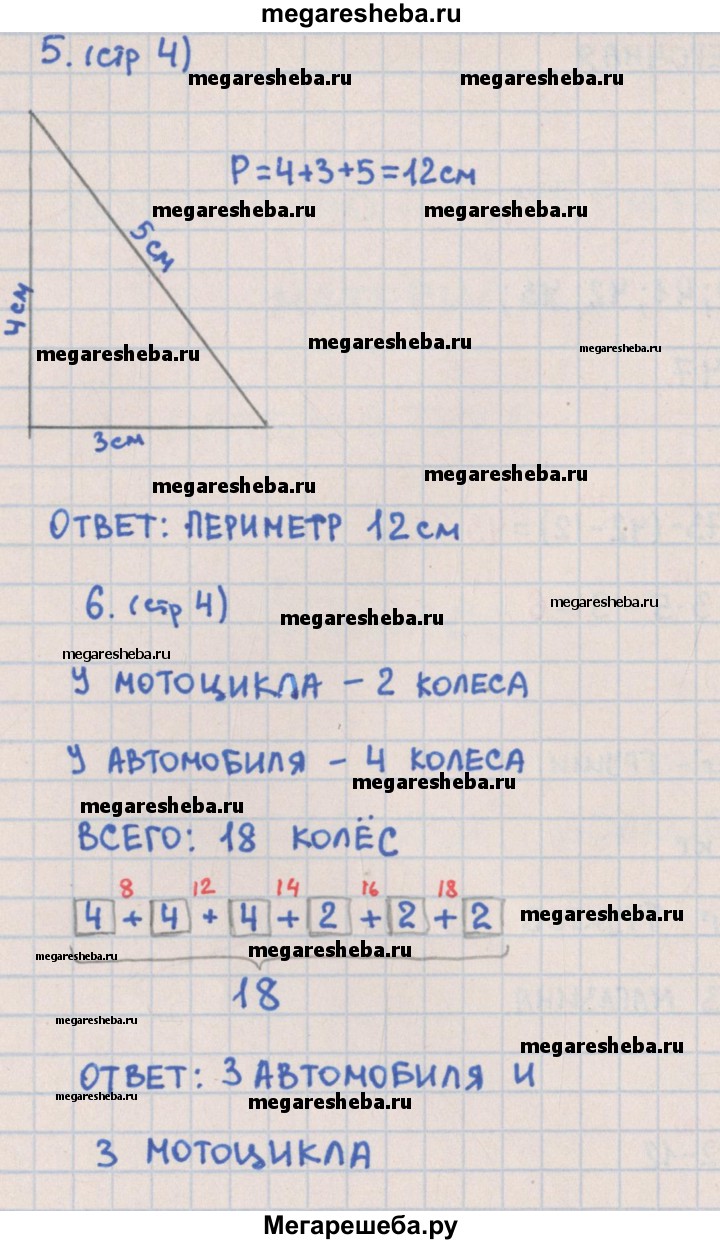 megaresheba.ru
5. (стр 4)
megaresheba.ru megaresheba.ru
P=4+3+5=12см
megaresheba.ru megaresheba.ru
5см
4см
megaresheba.ru megaresheba.ru megaresheba.ru
3см
megaresheba.ru megaresheba.ru
ОТВЕТ: ПЕРИМЕТР 12см
6. (стр 4)
megaresheba.ru megaresheba.ru
megaresheba.ru
У МОТОЦИКЛА – 2 КОЛЕСА
У АВТОМОБИЛЯ – 4 КОЛЕСА
megaresheba.ru
megaresheba.ru
ВСЕГО: 18 КОЛЁС
8 12 14 16 18
4 + 4 + 4 + 2 + 2 + 2
megaresheba.ru
megaresheba.ru megaresheba.ru
18
megaresheba.ru
megaresheba.ru
ОТВЕТ: 3 АВТОМОБИЛЯ И
megaresheba.ru megaresheba.ru
3 МОТОЦИКЛА
Мегарешеба.ру